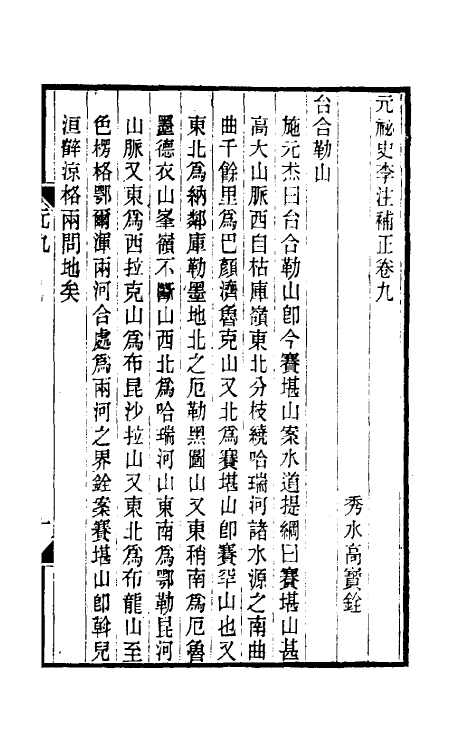 元祕史李注補正卷九
秀水高寶銓
台合勒山
施元杰曰台合勒山卽今賽堪山案水道提綱曰賽堪山甚
高大山脈西自枯庫嶺東北分枝繞哈瑞河諸水源之南曲
曲千餘里爲巴顏濟魯克山又北爲賽堪山卽賽罕山也又
東北爲納鄰庫勒墨地北之厄勒黑圖山又東稍南爲厄魯
墨德衣山峯嶺不斷山西北爲哈瑞河山東南爲鄂勒昆河
山脈又東爲西拉克山爲布昆沙拉山又東北爲布龍山至
色楞格鄂爾渾兩河合處爲兩河之界銓案賽堪山卽斡兒
洹薛涼格兩間地矣
元九